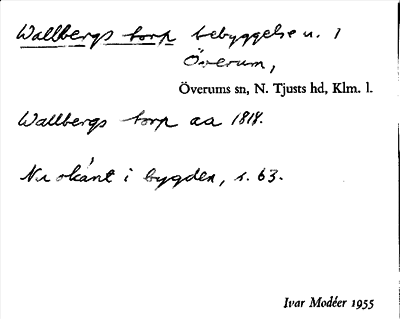 Wallbergs torp bebyggelsen. i
Överum,
Överums sn, N. Tjusts hd, Klm. l.
Wallbergs torp aa 1814.
Nu okänt i bygden, s. 63.
Ivar Modéer 1955